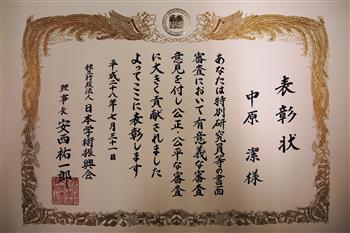 表彰状
中原 潔 様
あなたは特別研究員等の書面
審査において有意義な審査
意見を付し公正・公平な審査
に大きく貢献されました
よってここに表彰します
平成二十八年七月三十一日
独立行政法人 日本学術振興会
理事長 安西祐一郎